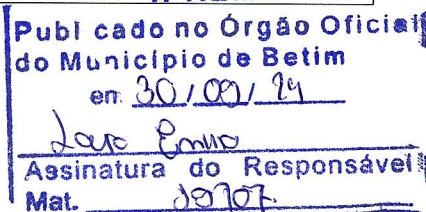 Publicado no Órgão Oficial
do Município de Betim
em 30/09/24
Assinatura do Responsável
Mat.